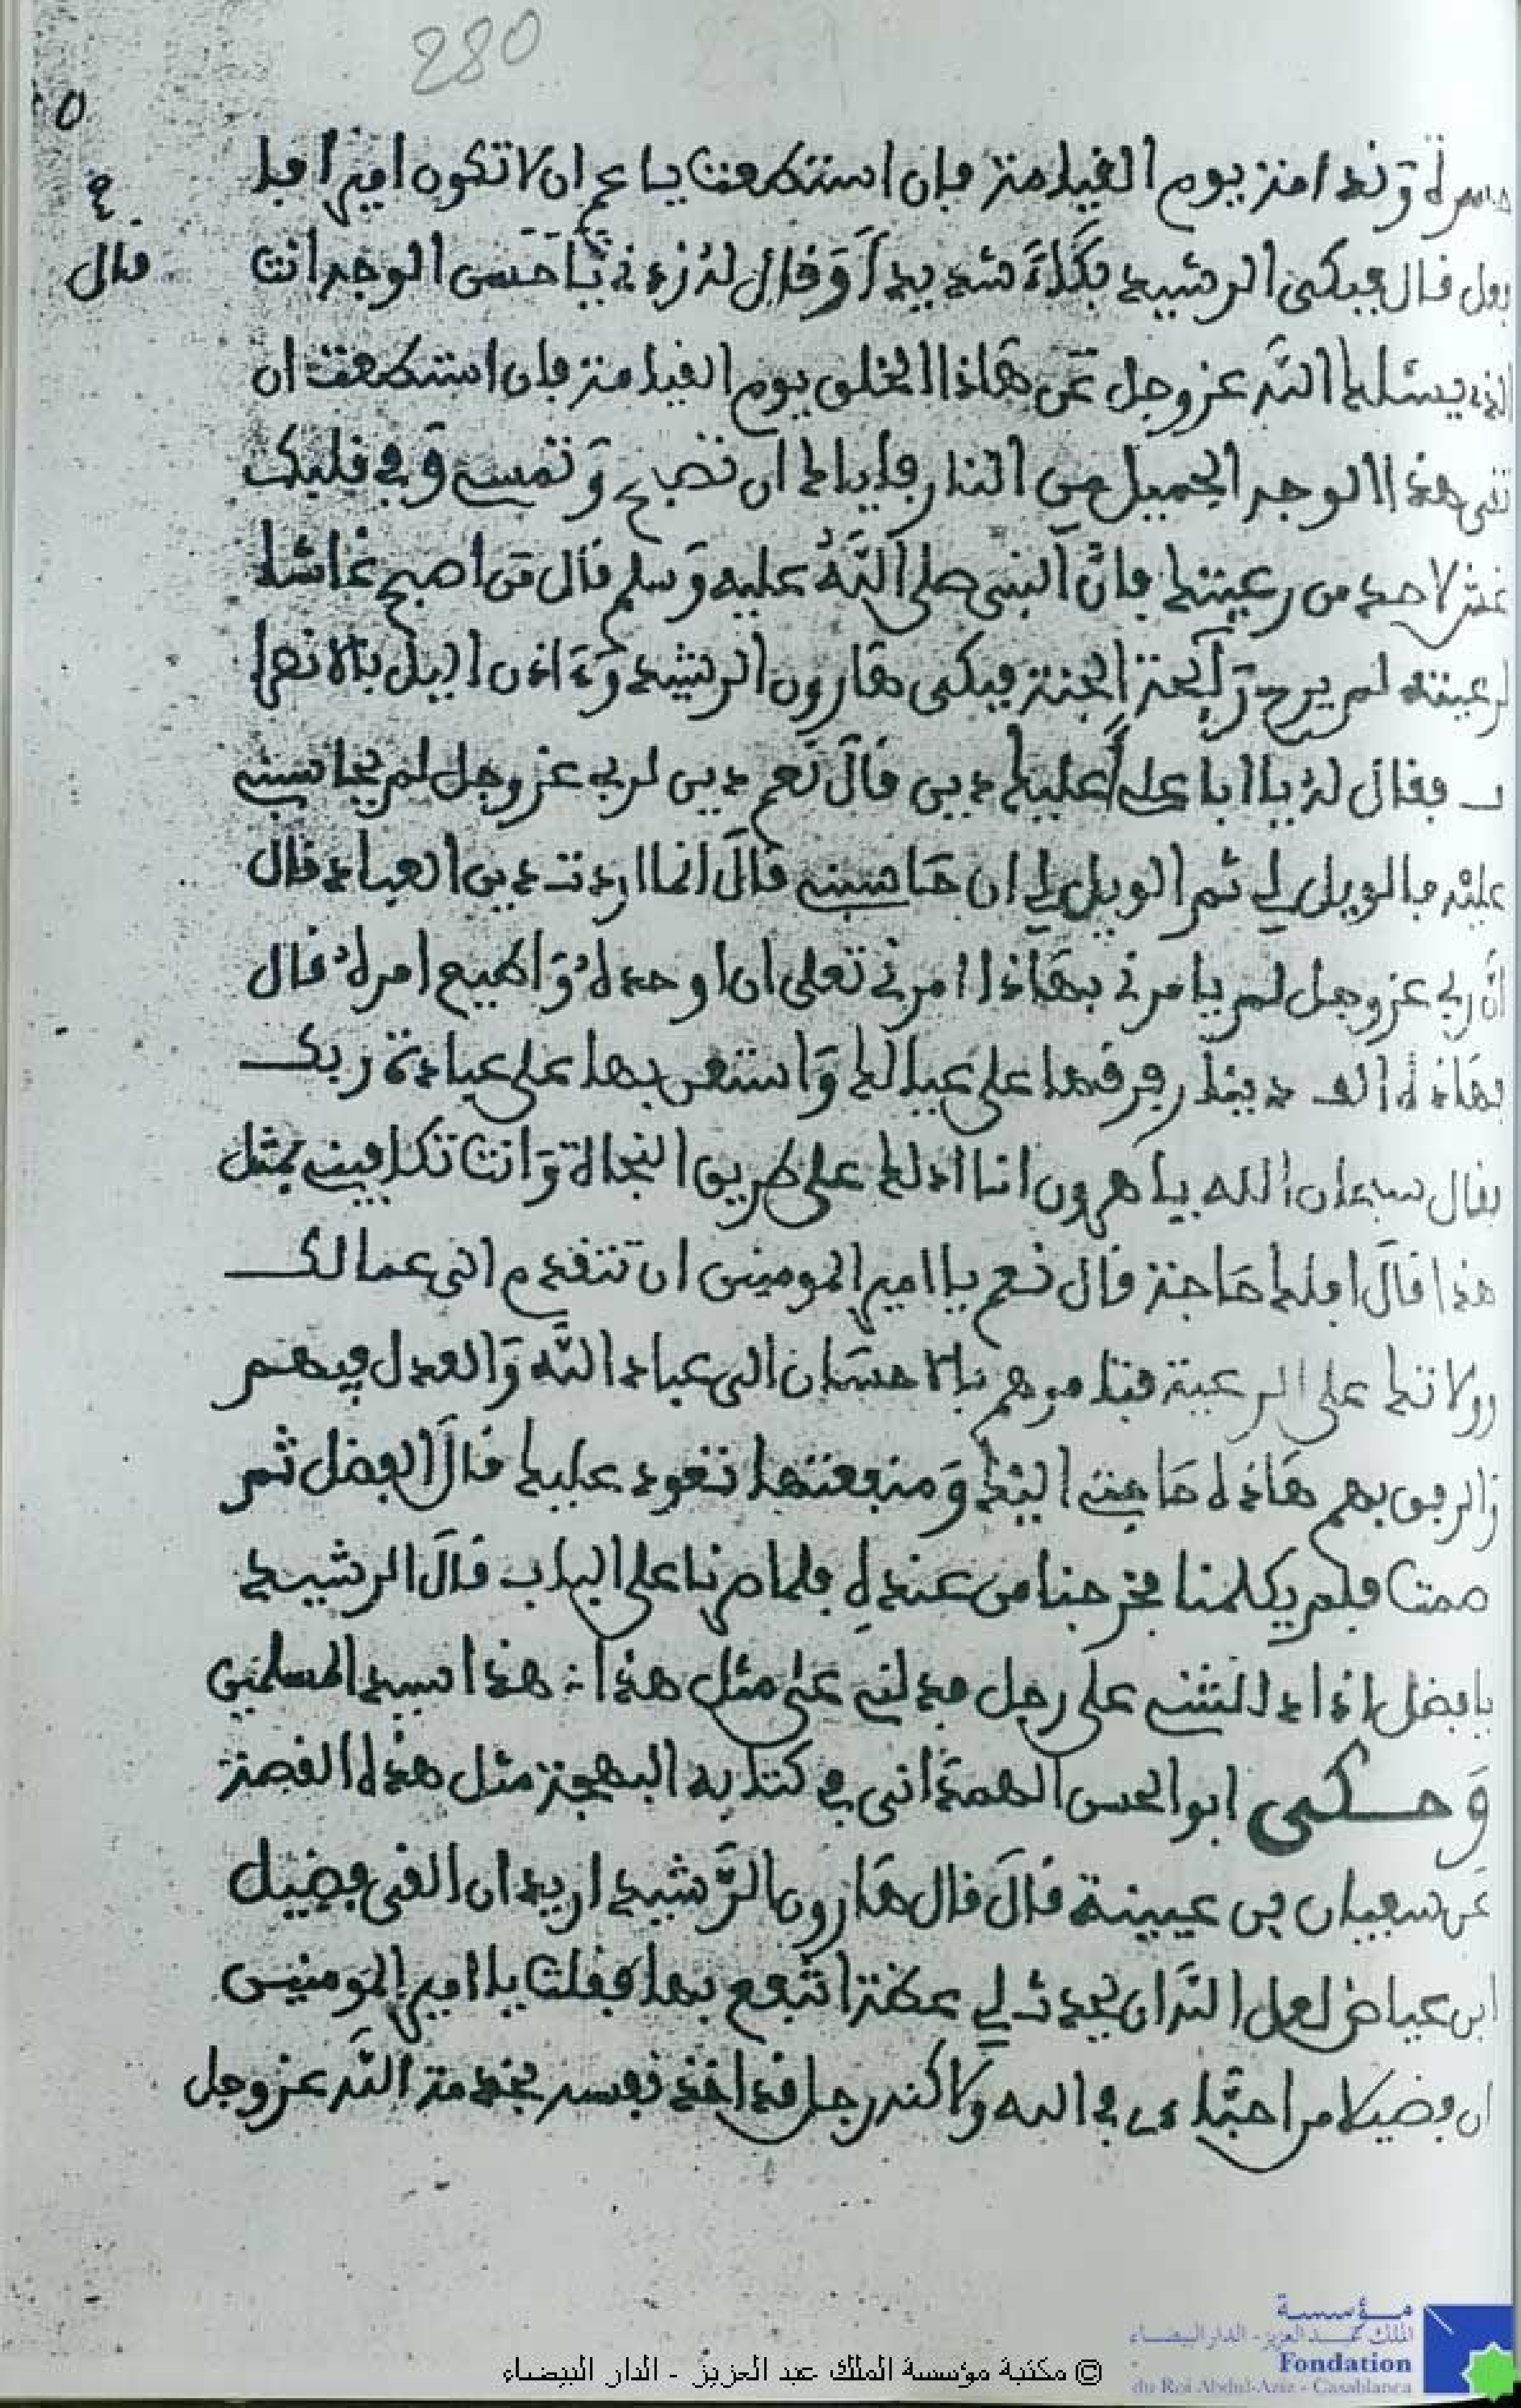 280
حسرة وندامة يوم القيامة فإن استطعت يا عم ان لا تكون اميرا فا
فعل فال فبكى الرشيد بكاء شديدا وقال له زدني يا حسن الوجه انت
الذي يسئلك الله عز وجل عن هاذا الخلق يوم القيامة فإن استطعت ان
تقي هذا الوجه الجميل من النار فإياك ان تصبح وتمسي وفي قلبك
غش لاحد من رعيتك فإن النبي صلى الله عليه وسلم قال من اصبح غاشا
لرعيته لم يرح رايحة الجنة فبكى هارون الرشيد واذن اليل بالانصرا
ف فقال له يا ابا علي أعليك دين قال نعم دين لربي عز وجل لم يحاسبني
عليه فالويل لي ثم الويل لي ان حاسبني قال انما اردت دين العباد قال
ان ربي عز وجل لم يامرني بهاذا امرني تعلى ان اوحده واطيع امره قال
فهاذه الف دينار فرقها على عيالك واستعن بها على عبادة ربك
فقال سبحان الله يا هرون انا ادلك على طريق النجاة وانت تكافيني بمثل
هذا قال افلك حاجة قال نعم يا امير المومنين ان تتقدم الى عمالك
وولاتك على الرعية فتامرهم بالاحسان الى عباد الله والعدل فيهم
والرفق بهم هاذه حاجتي اليك ومنفعتها تعود عليك قال الفضل ثم
صمت فلم يكلمنا فخرجنا من عنده فلما صرنا على الباب قال الرشيد
يا فضل اذا دللتني على رجل فدلني على مثل هذا هذا سيد المسلمين
وحكى ابو الحسن الهمداني في كتابه البهجة مثل هذه القصة
عن سفيان بن عيينة قال قال هارون الرشيد اريد ان القى فضيل
ابن عياض لعل الله ان يحدث لي عظة انتفع بها فقلت يا امير المومنين
ان فضيلا من احب الناس في الله ولاكنه رجل قد اخذ نفسه بخدمة الله عز وجل
قال
© مكتبة مؤسسة الملك عبد العزيز - الدار البيضاء
مؤسسة
الملك عبد العزيز - الدار البيضاء
Fondation
du Roi Abdul-Aziz - Casablanca